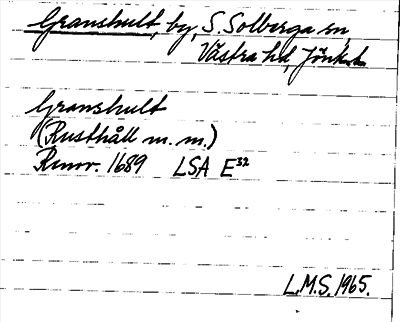 Granshult, by, S. Solberga sn
Västra hd, Jönk. l.
Granshult
(Rusthåll m.m.)
Renov. 1689 LSA E³²
L.M.S. 1965.